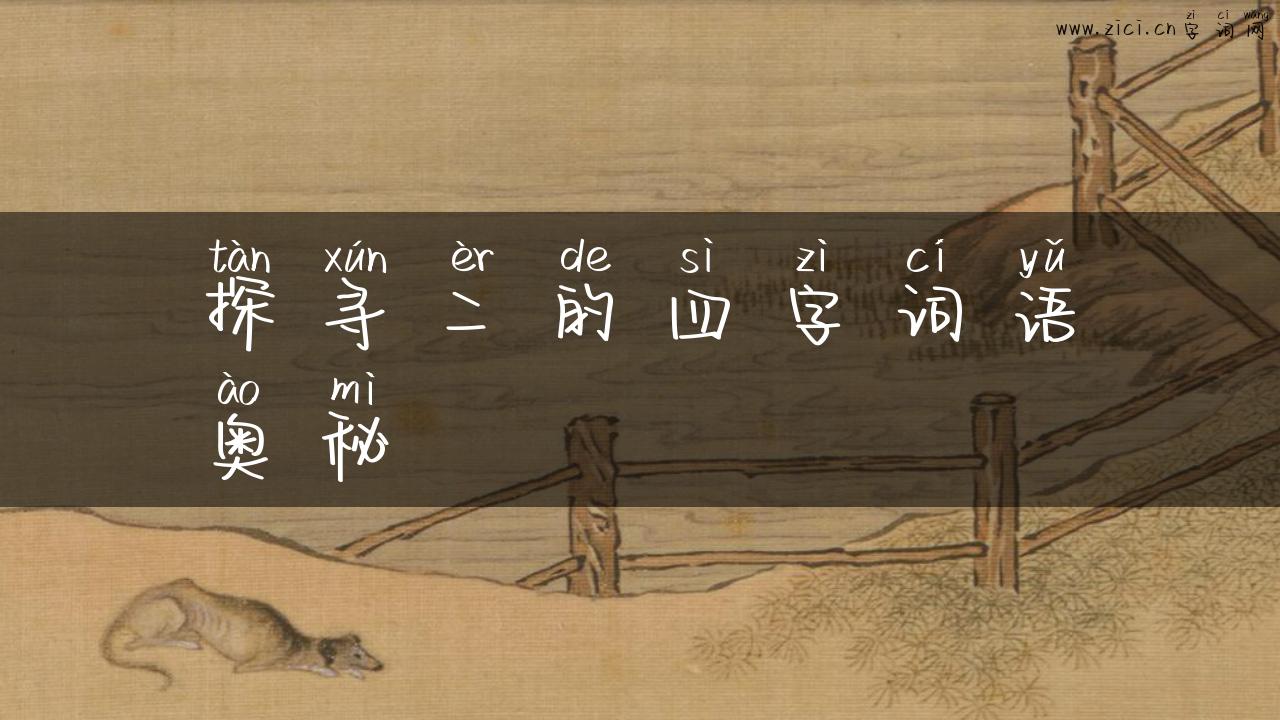 zì cí wǎng
www.zici.cn 字词网
tàn xún èr de sì zì cí yǔ
探寻二的四字词语
ào mì
奥秘